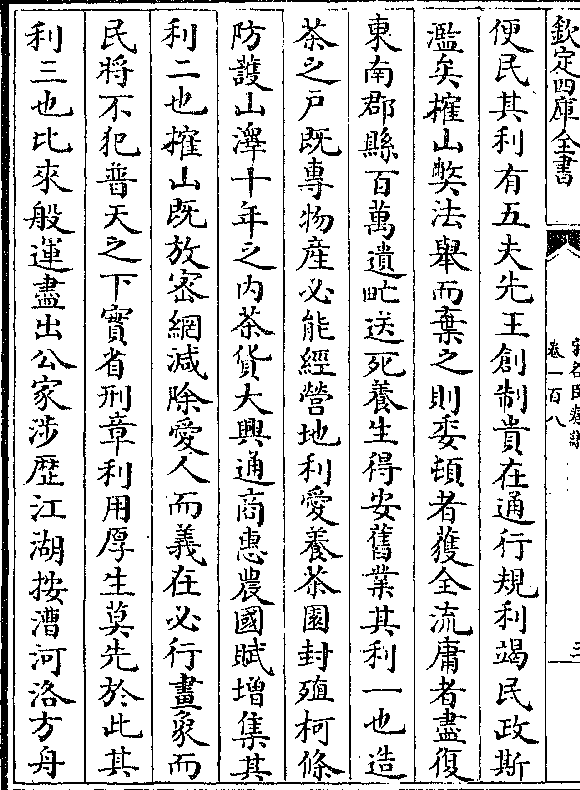 欽定四庫全書
卷一百八
便民其利有五夫先王創制貴在通行規利竭民政斯
濫矣搉山獘法舉而棄之則委頓者獲全流庸者盡復
東南郡縣百萬遺甿送死養生得安舊業其利一也造
茶之戸既專物産必能經營地利愛養茶園封殖柯條
防䕶山澤十年之内茶貨大興通商惠農國賦增集其
利二也搉山既放宻網減除愛人而義在必行畫象而
民將不犯普天之下實省刑章利用厚生莫先於此其
利三也比來般運盡出公家涉歴江湖按漕河洛方舟